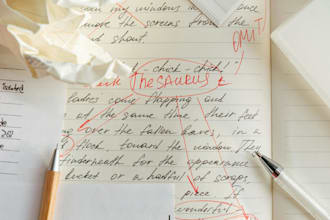 my windows in once
more the screens from the
and shout.
OMIT
chick - chick!
THESAURUS
ladies come flapping and
at the same time, their feet
over the fallen leaves, in a
flock, toward the window. They
underneath for the appearance
bucket or a handful of scraps,
piece if
wonderful